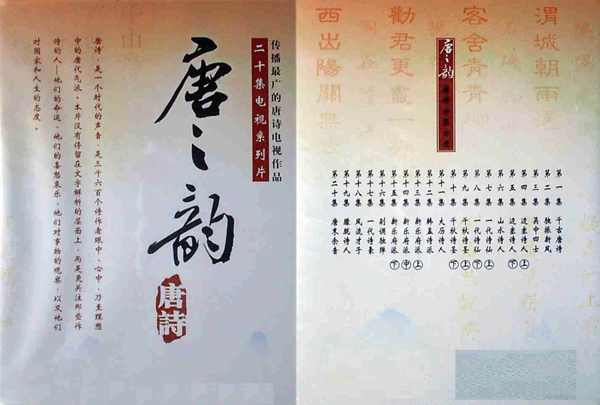 传播最广的唐诗电视作品
二十集电视系列片
唐之韵
唐詩
唐诗，是一个时代的声音，是三千六百个诗作者眼中、心中，乃至理想
中的唐代。本片没有停留在文字解释的层面上，而是更关注那些作
诗的人—他们的命运、他们的喜怒哀乐、他们对事物的观察，以及他们
对国家和人生的态度。
渭城朝雨
客舍青青
勸君更盡一杯
西出陽關無故
唐之韵
第一集 千古唐诗
第二集 独振新风
第三集 吴中四士
第四集 边塞诗人 上
第五集 边塞诗人 下
第六集 山水诗人
第七集 一代诗仙 上
第八集 一代诗仙 下
第九集 千秋诗圣 上
第十集 千秋诗圣 下
第十一集 大历诗人
第十二集 韩孟诗派
第十三集 新乐府派 上
第十四集 新乐府派 中
第十五集 新乐府派 下
第十六集 别调独弹
第十七集 一代诗豪
第十八集 风流才子
第十九集 朦胧诗人
第二十集 唐末余音